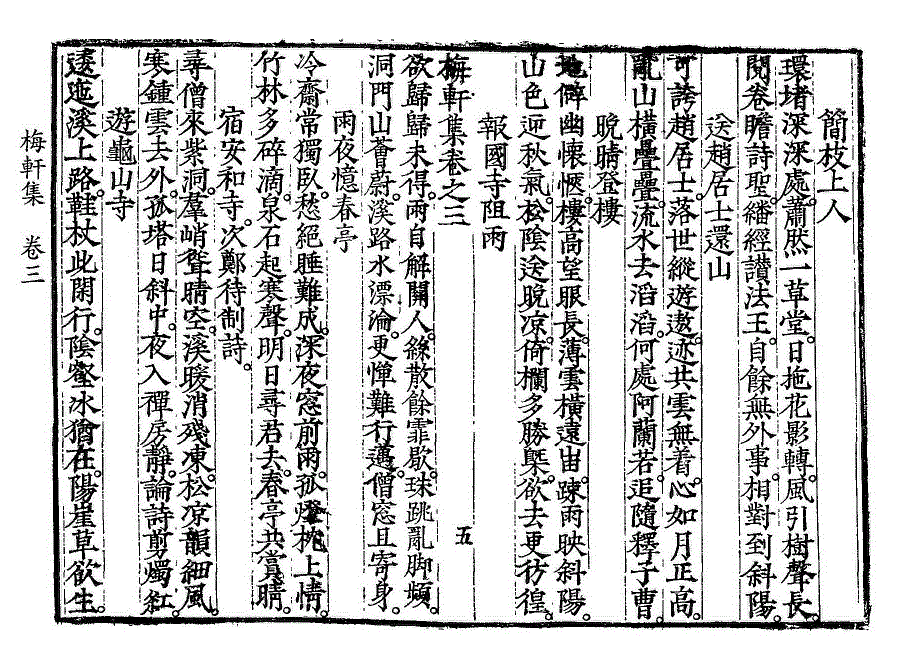 簡枝上人
環堵深深處。蕭然一草堂。日拖花影轉。風引樹聲長。
閱卷瞻詩聖。繙經讃法王。自餘無外事。相對到斜陽。
送趙居士還山
可誇趙居士。落世縱遊遨。迹共雲無着。心如月正高。
亂山橫疊疊。流水去滔滔。何處阿蘭若。追隨釋子曹。
晩晴登樓
地僻幽懷愜。樓高望眼長。薄雲橫遠岫。踈雨映斜陽。
山色迎秋氣。松陰送晩凉。倚欄多勝槩。欲去更彷徨。
梅軒集卷之三
五
報國寺阻雨
欲歸歸未得。雨自解關人。絲散餘霏歇。珠跳亂脚頻。
洞門山薈蔚。溪路水漂淪。更憚難行邁。僧窓且寄身。
雨夜憶春亭
冷齋常獨臥。愁絕睡難成。深夜窓前雨。孤燈枕上情。
竹林多碎滴。泉石起寒聲。明日尋君去。春亭共賞晴。
宿安和寺。次鄭待制詩。
尋僧來紫洞。羣峭聳晴空。溪暖消殘凍。松凉韻細風。
寒鍾雲去外。孤塔日斜中。夜入禪房靜。論詩剪燭紅。
遊龜山寺
逶迤溪上路。鞋杖此閑行。陰壑冰猶在。陽崖草欲生。
梅軒集 卷三